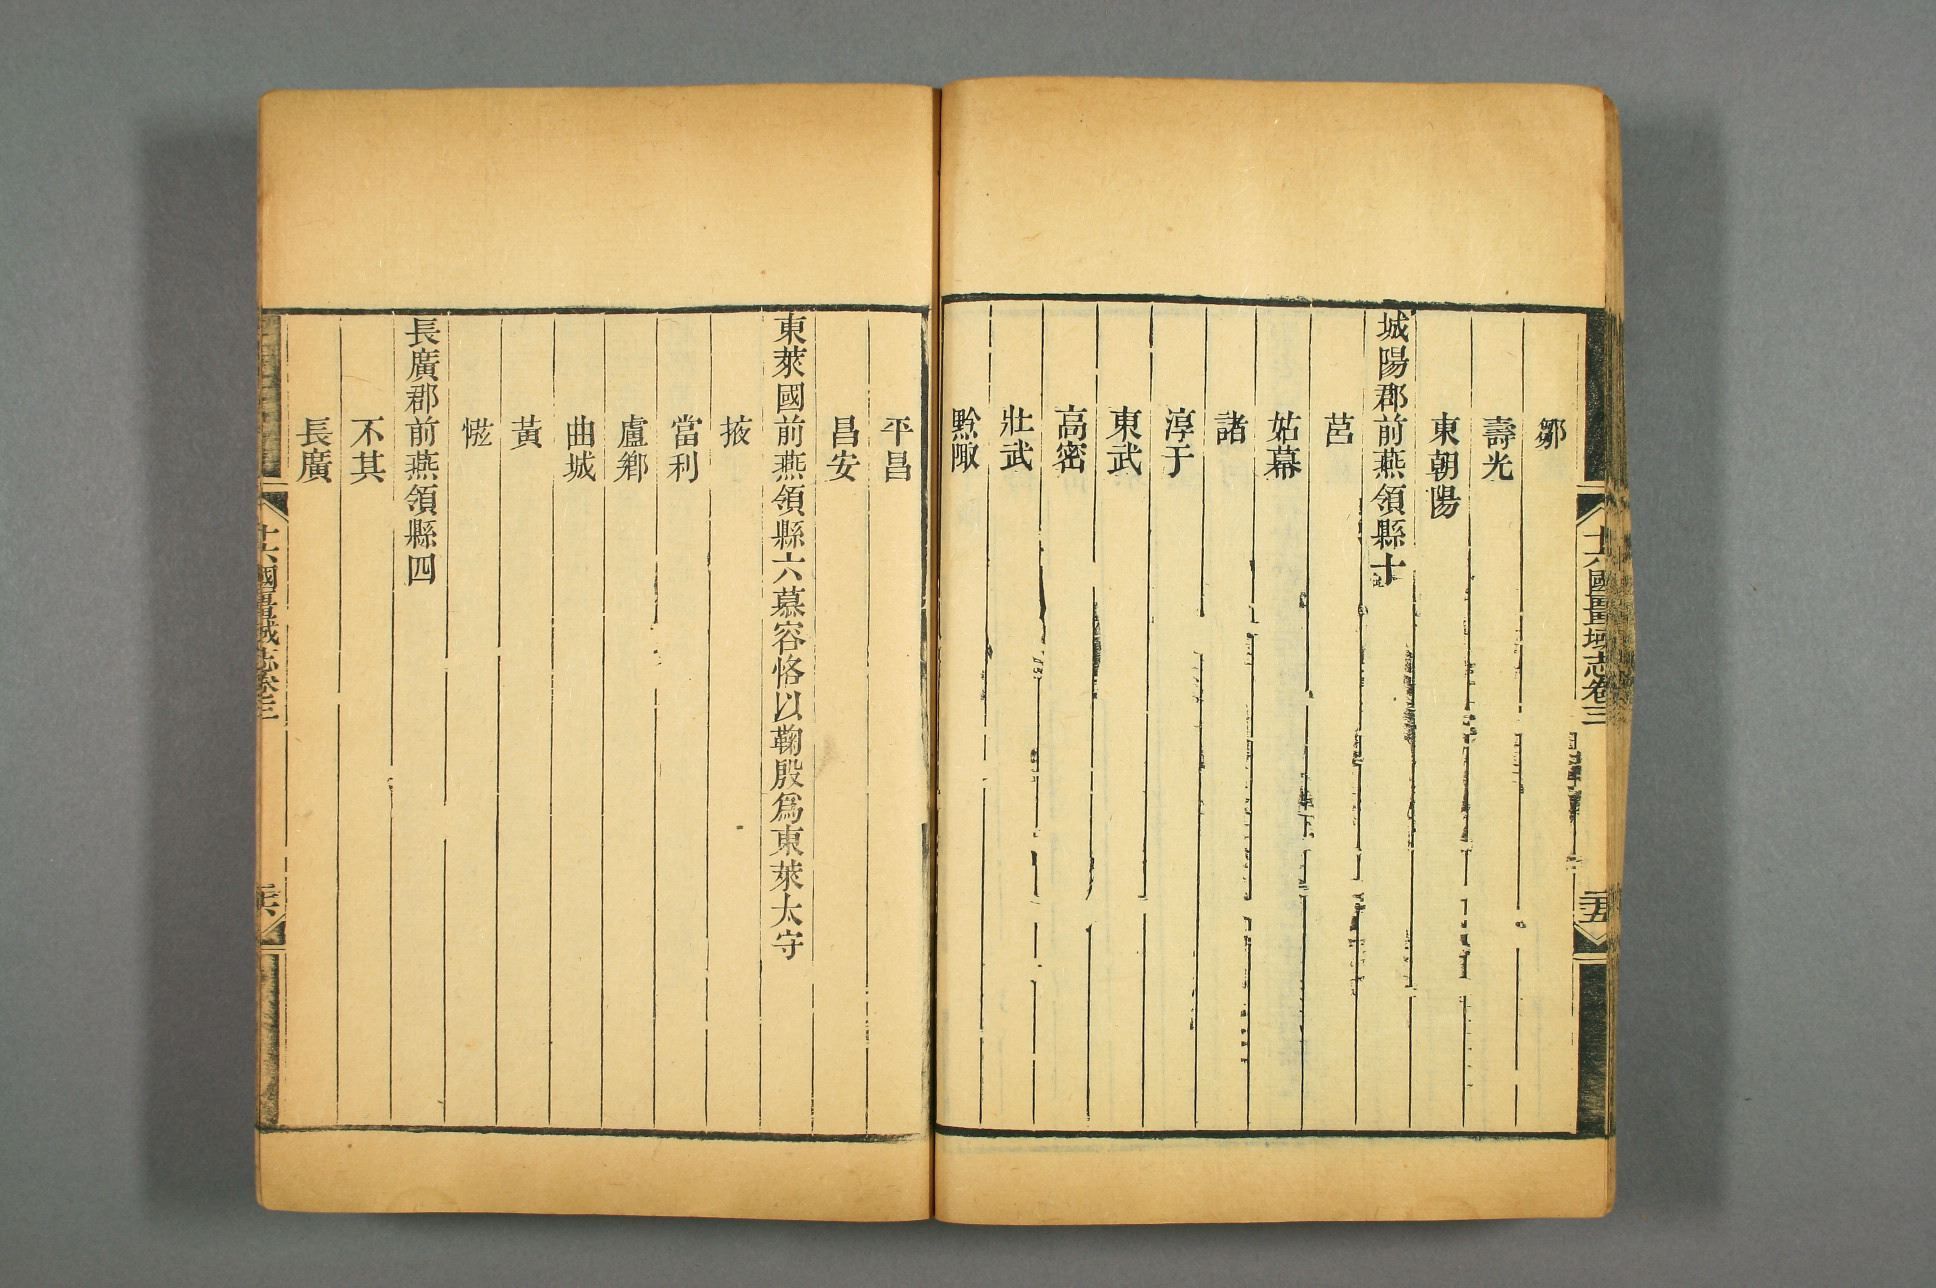 十六國疆域志卷三
二五
鄒
壽光
東朝陽
城陽郡前燕領縣十
莒
姑幕
諸
淳于
東武
高密
壯武
黔陬
平昌
昌安
東萊國前燕領縣六慕容恪以鞠殷爲東萊太守
掖
當利
盧鄉
曲城
黃
㡉
長廣郡前燕領縣四
不其
長廣
十六國疆域志卷三
二六